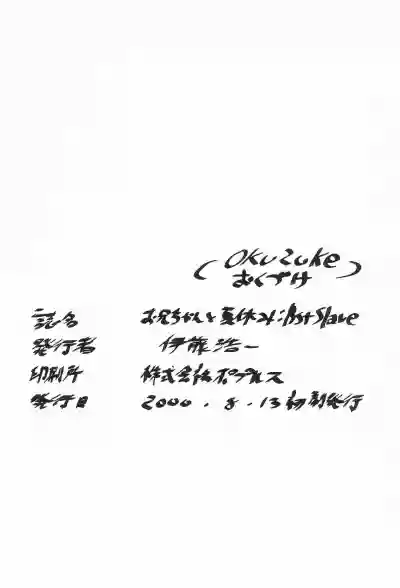 (Okuzuke
おくづけ)
誌名 お兄ちゃんと夏休み:1st Slave
発行者 伊藤浩一
印刷所 株式会社ポプルス
発行日 2000.8.13初刷発行